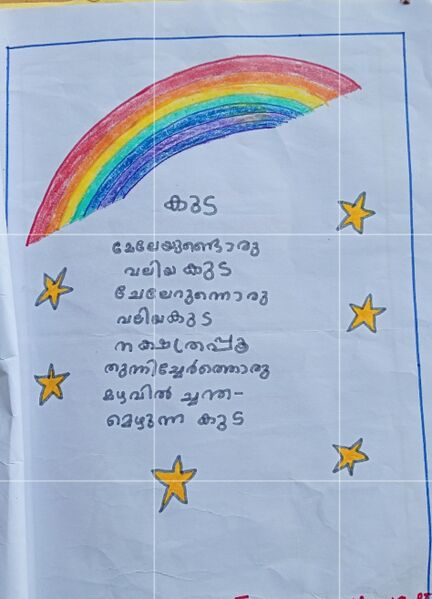 കുട
മേലേയുണ്ടൊരു
വലിയ കുട
ചേലേറുന്നൊരു
വലിയകുട
നക്ഷത്രപ്പൂ
തുന്നിച്ചേർത്തൊരു
മഴവിൽ ച്ചന്ത-
മെഴുന്ന കുട